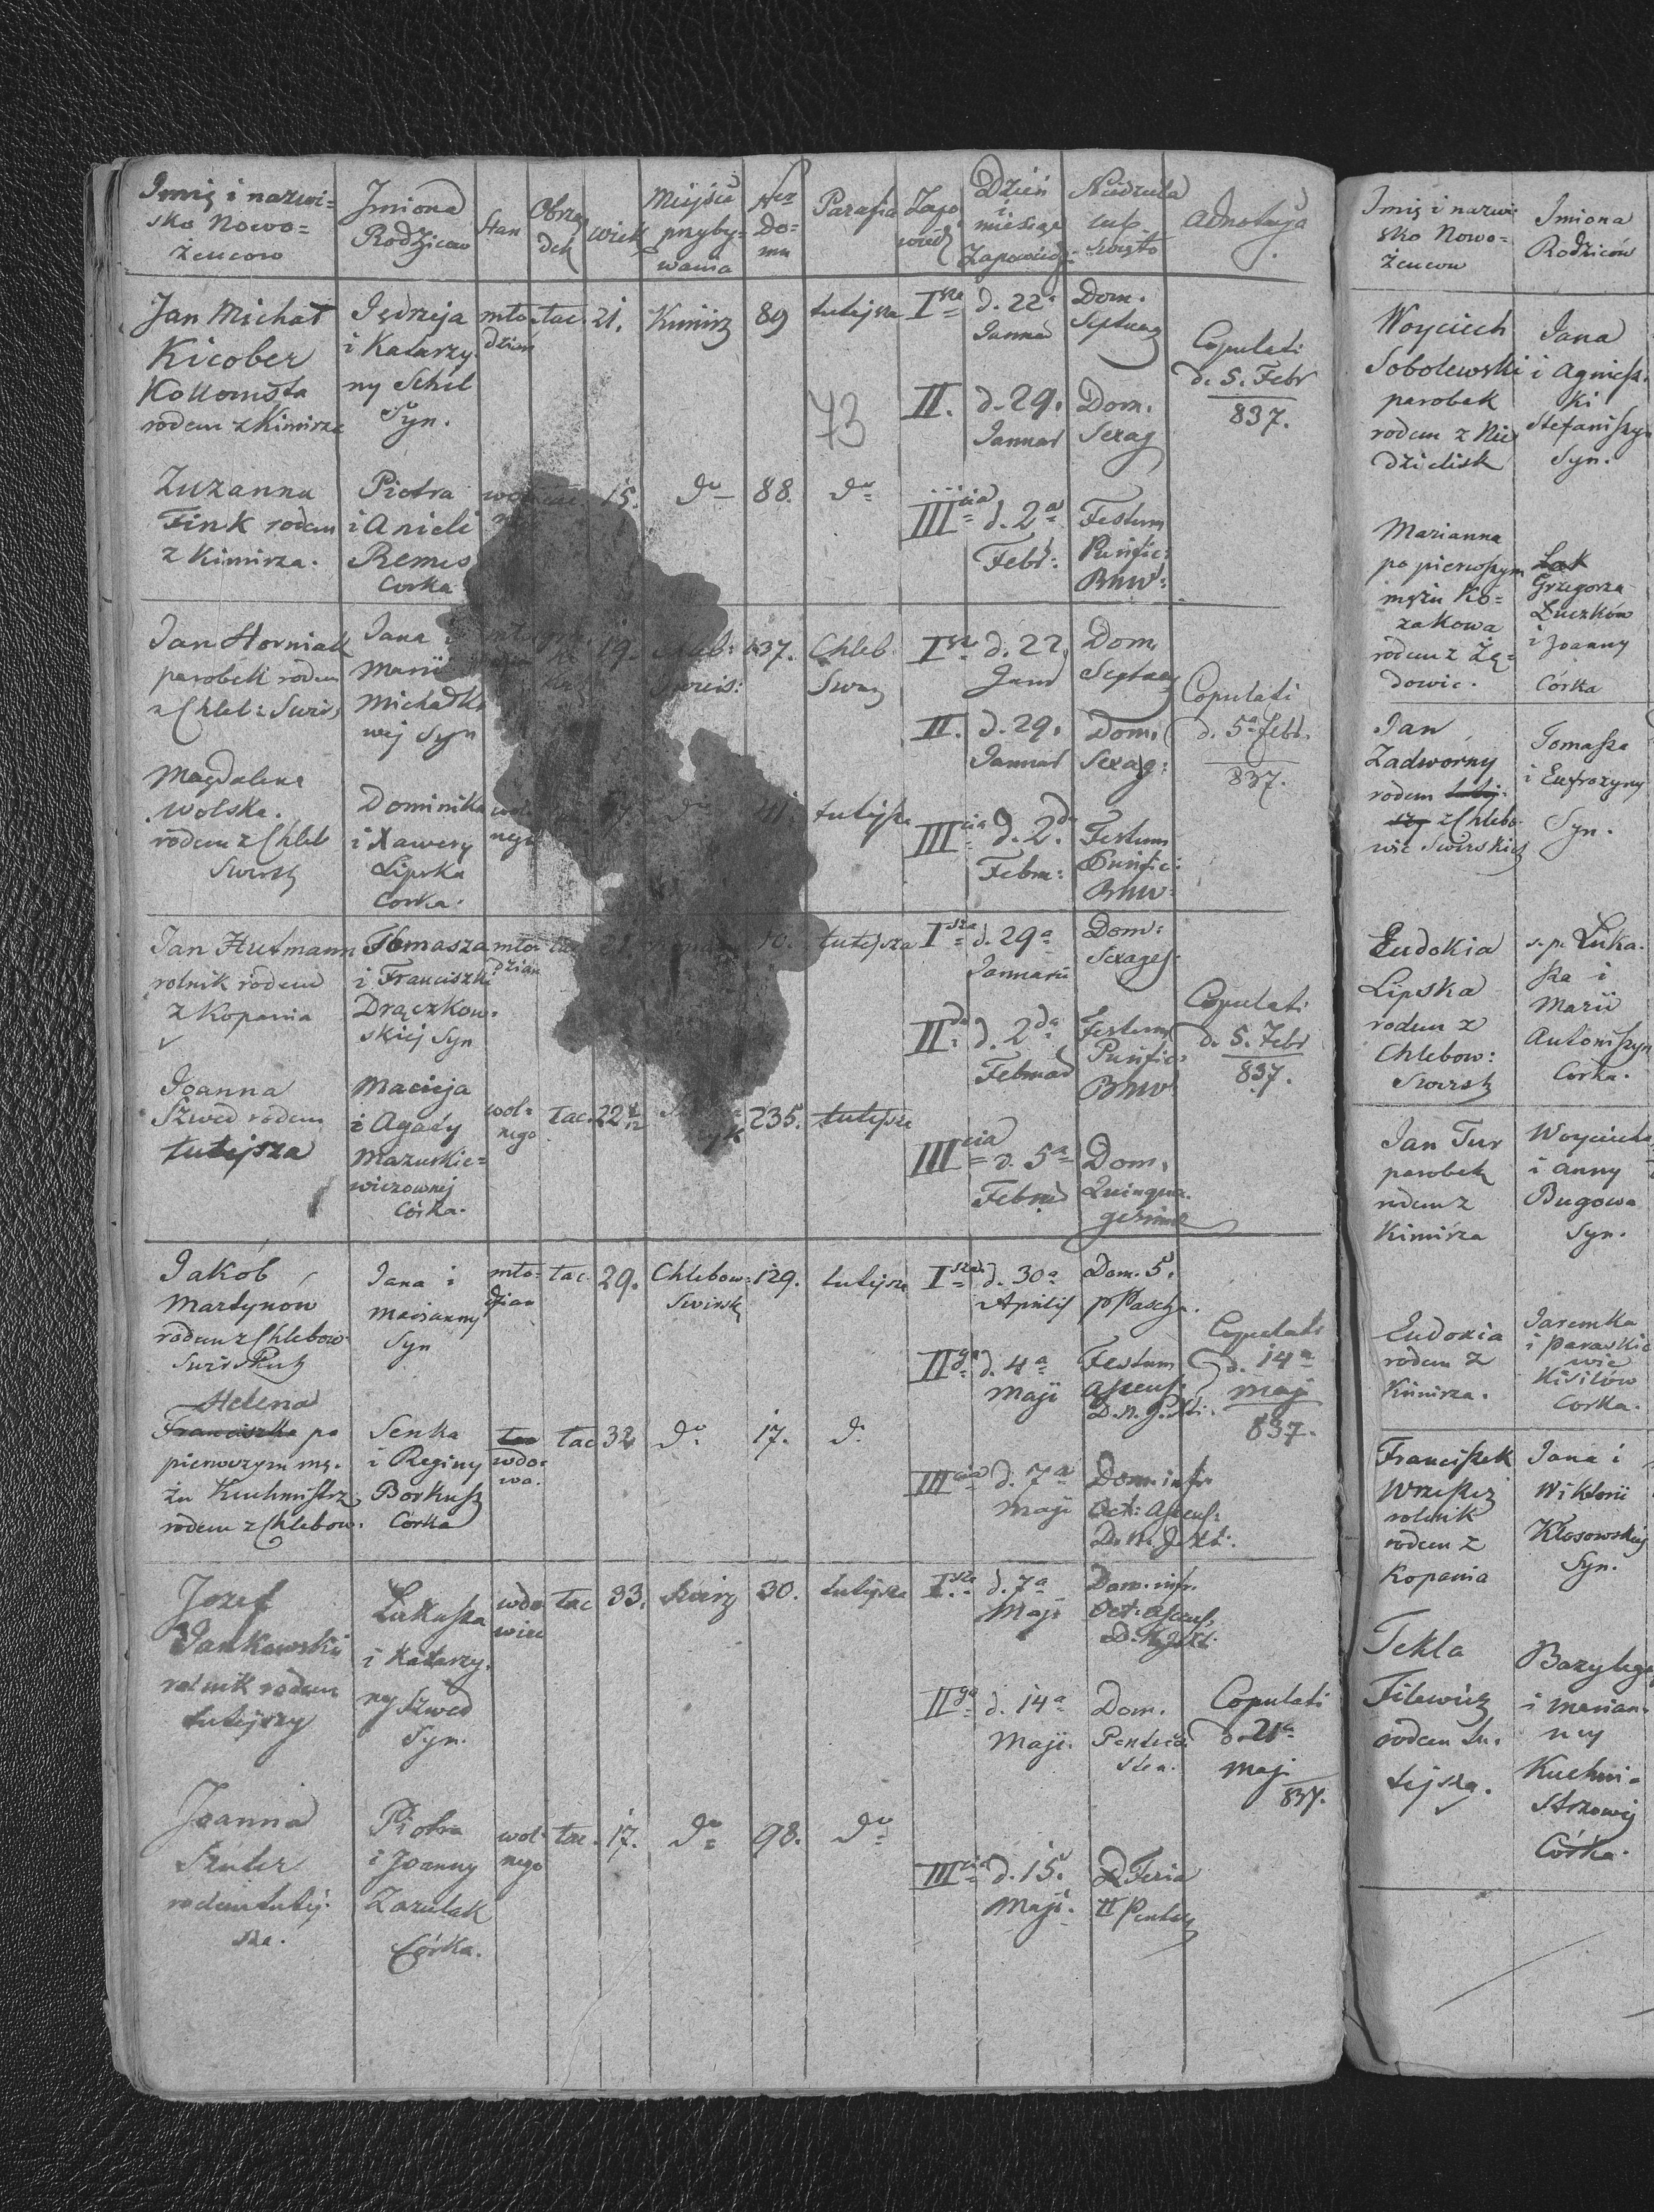 Imię i nazwi=
sko Nowo=
żeńcow
Jmiona
Rodzicow
Stan
Obrzą
dek
wiek
Miejsce
przyby=
wania
Nro
Do=
mu
Parafia
Zapo
wiedź
Dzień
i
miesiąc
Zapowiedzi
Niedziela
lub
święto
Adnotacja
Jan Michał
Kicober
Kollonista
rodem z Kimirza
Jędrzeja
i Katarzy
ny Schil
Syn.
mło
dzian
łac. 21. Kimirz 89 tutejsza
I d. 22a Dom.
Januar Septuag
II. d. 29. Dom.
Januar Sexag
Copulati
d. 5. Febr
837.
73
Zuzanna
Fink rodem
z Kimirza.
Piotra
i Anieli
Remus
Corka
15. do 88. do
IIIcia d. 2a Festum
Febr: Purific:
BMV:
Jan Horniak
parobek rodem
z Chleb: Swirs
Jana i
Marii
Michałko
wej Syn
19. 137. Chleb.
I d. 22. Dom.
Septuag
II. d. 29. Dom.
Januar Sexag:
Copulati
d. 5a Febr.
837.
Magdalena
Wolska.
rodem z Chleb
Swirsk
Dominika
i Xawery
Lipska
Corka.
wol
nego
tutejsza
IIIcia d. 2da Festum
Febru: Purific:
BMV:
Jan Hutmann
rolnik rodem
z Kopania
Tomasza
i Franciszki
Drączkow=
skiej Syn
mło
dzian
10. tutejsza
Isza d. 29a Dom:
Januarii Sexages.
IIda d. 2da Festum
Februar Purific:
BMV
Copulati
d. 5. Febr
837.
Joanna
Szwed rodem
tutejsza
Macieja
i Agaty
Mazurkie=
wiczownej
Córka.
wol=
nego
łac. 22 235. tutejsza
IIIcia d. 5a Dom.
Februar Quinqua=
gesima
Jakób
Martynow
rodem z Chlebow
Swirskich
Jana i
Marianny
Syn
mło=
dzian
łac. 29. Chlebow:
Swirsk
129. tutejsza
Isza d. 30a Dom. 5.
Aprilis p Pascha.
IIga d. 4a Festum
Maji Ascens:
D. N. J. Xti.
Copulati
d. 14a
Maji
837.
Helena
Franciszka po
pierwszym mę=
żu Kuchmistrz
rodem z Chlebow.
Senka
i Reginy
Borkusz
Córka
łac
wdo=
wa.
łac 32 do. 17. d.
IIIcia d. 7a Dom infr.
Maji Oct: Ascens:
D. N. J. Xt.
Jozef
Jankowski
rolnik rodem
tutejszy
Łukasza
i Katarzy.
ny Szwed
Syn.
wdo
wiec
łac 33. 30. tutejsza
Isza d. 7a Dom. infr.
Maji Oct: Ascens.
D. N. J. Xt.
IIga d. 14a Dom.
Maji. Penteco
stes.
Copulati
d. 21a
Maji
837.
Joanna
Szuter
rodem tutej.
sza.
Piotra
i Joanny
Zazulak
Córka.
wol=
nego
łac. 17. do 98. do
IIIcia d. 15. Feria
Maji. II Pentec
Imię i nazwi
sko Nowo=
żeńcow
Imiona
Rodziców
Woyciech
Sobolewski
parobek
rodem z Nie
dzielisk
Jana
i Agniesz.
ki
Stefaniszyn
Syn.
Marianna
po pierwszym
mężu Ko=
zakowa
rodem z Lą=
dowic.
Łuk
Grzegorza
Łuczków
i Joanny
Córka
Jan
Zadworny
rodem tutej.
szy z Chlebo
wic Swirskich
Tomasza
i Eufrozyny
Syn.
Eudokia
Lipska
rodem z
Chlebow:
Swirsk
s. p. Łuka.
sza i
Marii
Antoniszyn
Corka.
Jan Tur
parobek
rodem z
Kimirza
Woyciecha
i Anny
Bugowa
Syn.
Eudoxia
rodem z
Kimirza.
Jaremka
i Paraskie
wie
Kisilów
Corka.
Franciszek
Wrzeszcz
rolnik
rodem z
Kopania
Jana i
Wiktorii
Kłosowskiej
Syn.
Tekla
Filewicz
rodem tu.
tejsza.
Bazylego
i Marian.
ny
Kuchmi=
strzowej
Córka.